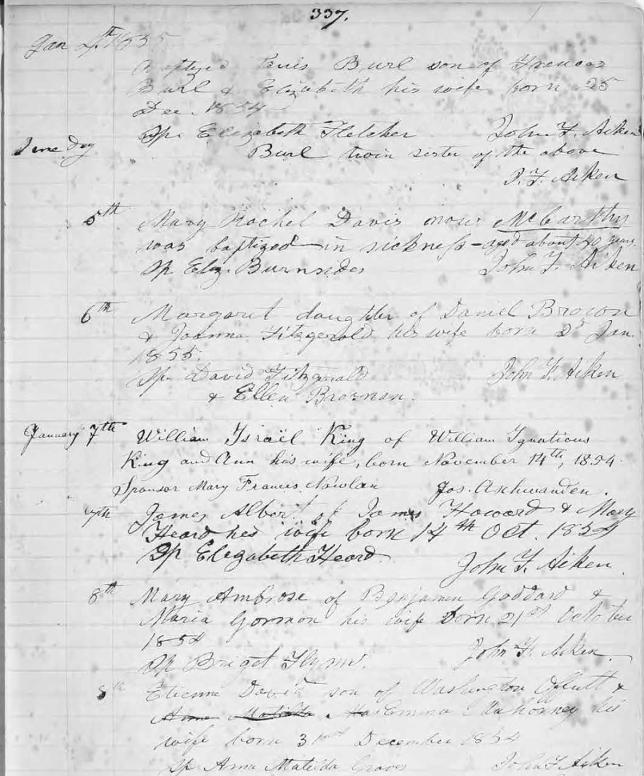 337.
Jan 4th 1855
Baptized Burl son of
Burl & Elizabeth his wife born 25
Dec. 1854
Sp Elizabeth Fletcher John F. Aiken
Same day Burl twin sister of the above
J. F. Aiken
5th Mary Rachel Davis now McCarthy
was baptized in sickness - aged about 40 years
Sp Eliz. Burnsides John F. Aiken
6th Margaret daughter of Daniel Brown
& Joanna Fitzgerald his wife born 2d Jan.
1855.
Sp David Fitzgerald John F. Aiken
& Ellen Brosnan.
January 7th William Israël King of William Ignatious
King and Ann his wife, born November 14th, 1854
Sponsor Mary Frances Nowlan Jos. Aschwanden.
7th James Albert of James Howard & Mary
Heard his wife born 14th Oct. 1854
Sp Elizabeth Heard John F. Aiken.
8th Mary Ambrose of Benjamin Goddard &
Maria Gormon his wife born 21st October
1854
Sp Briget Flynn. John F. Aiken.
8th Etienne David son of Washington &
Emma his
wife born December 1854
Sp Anna Matilda Graves John F. Aiken